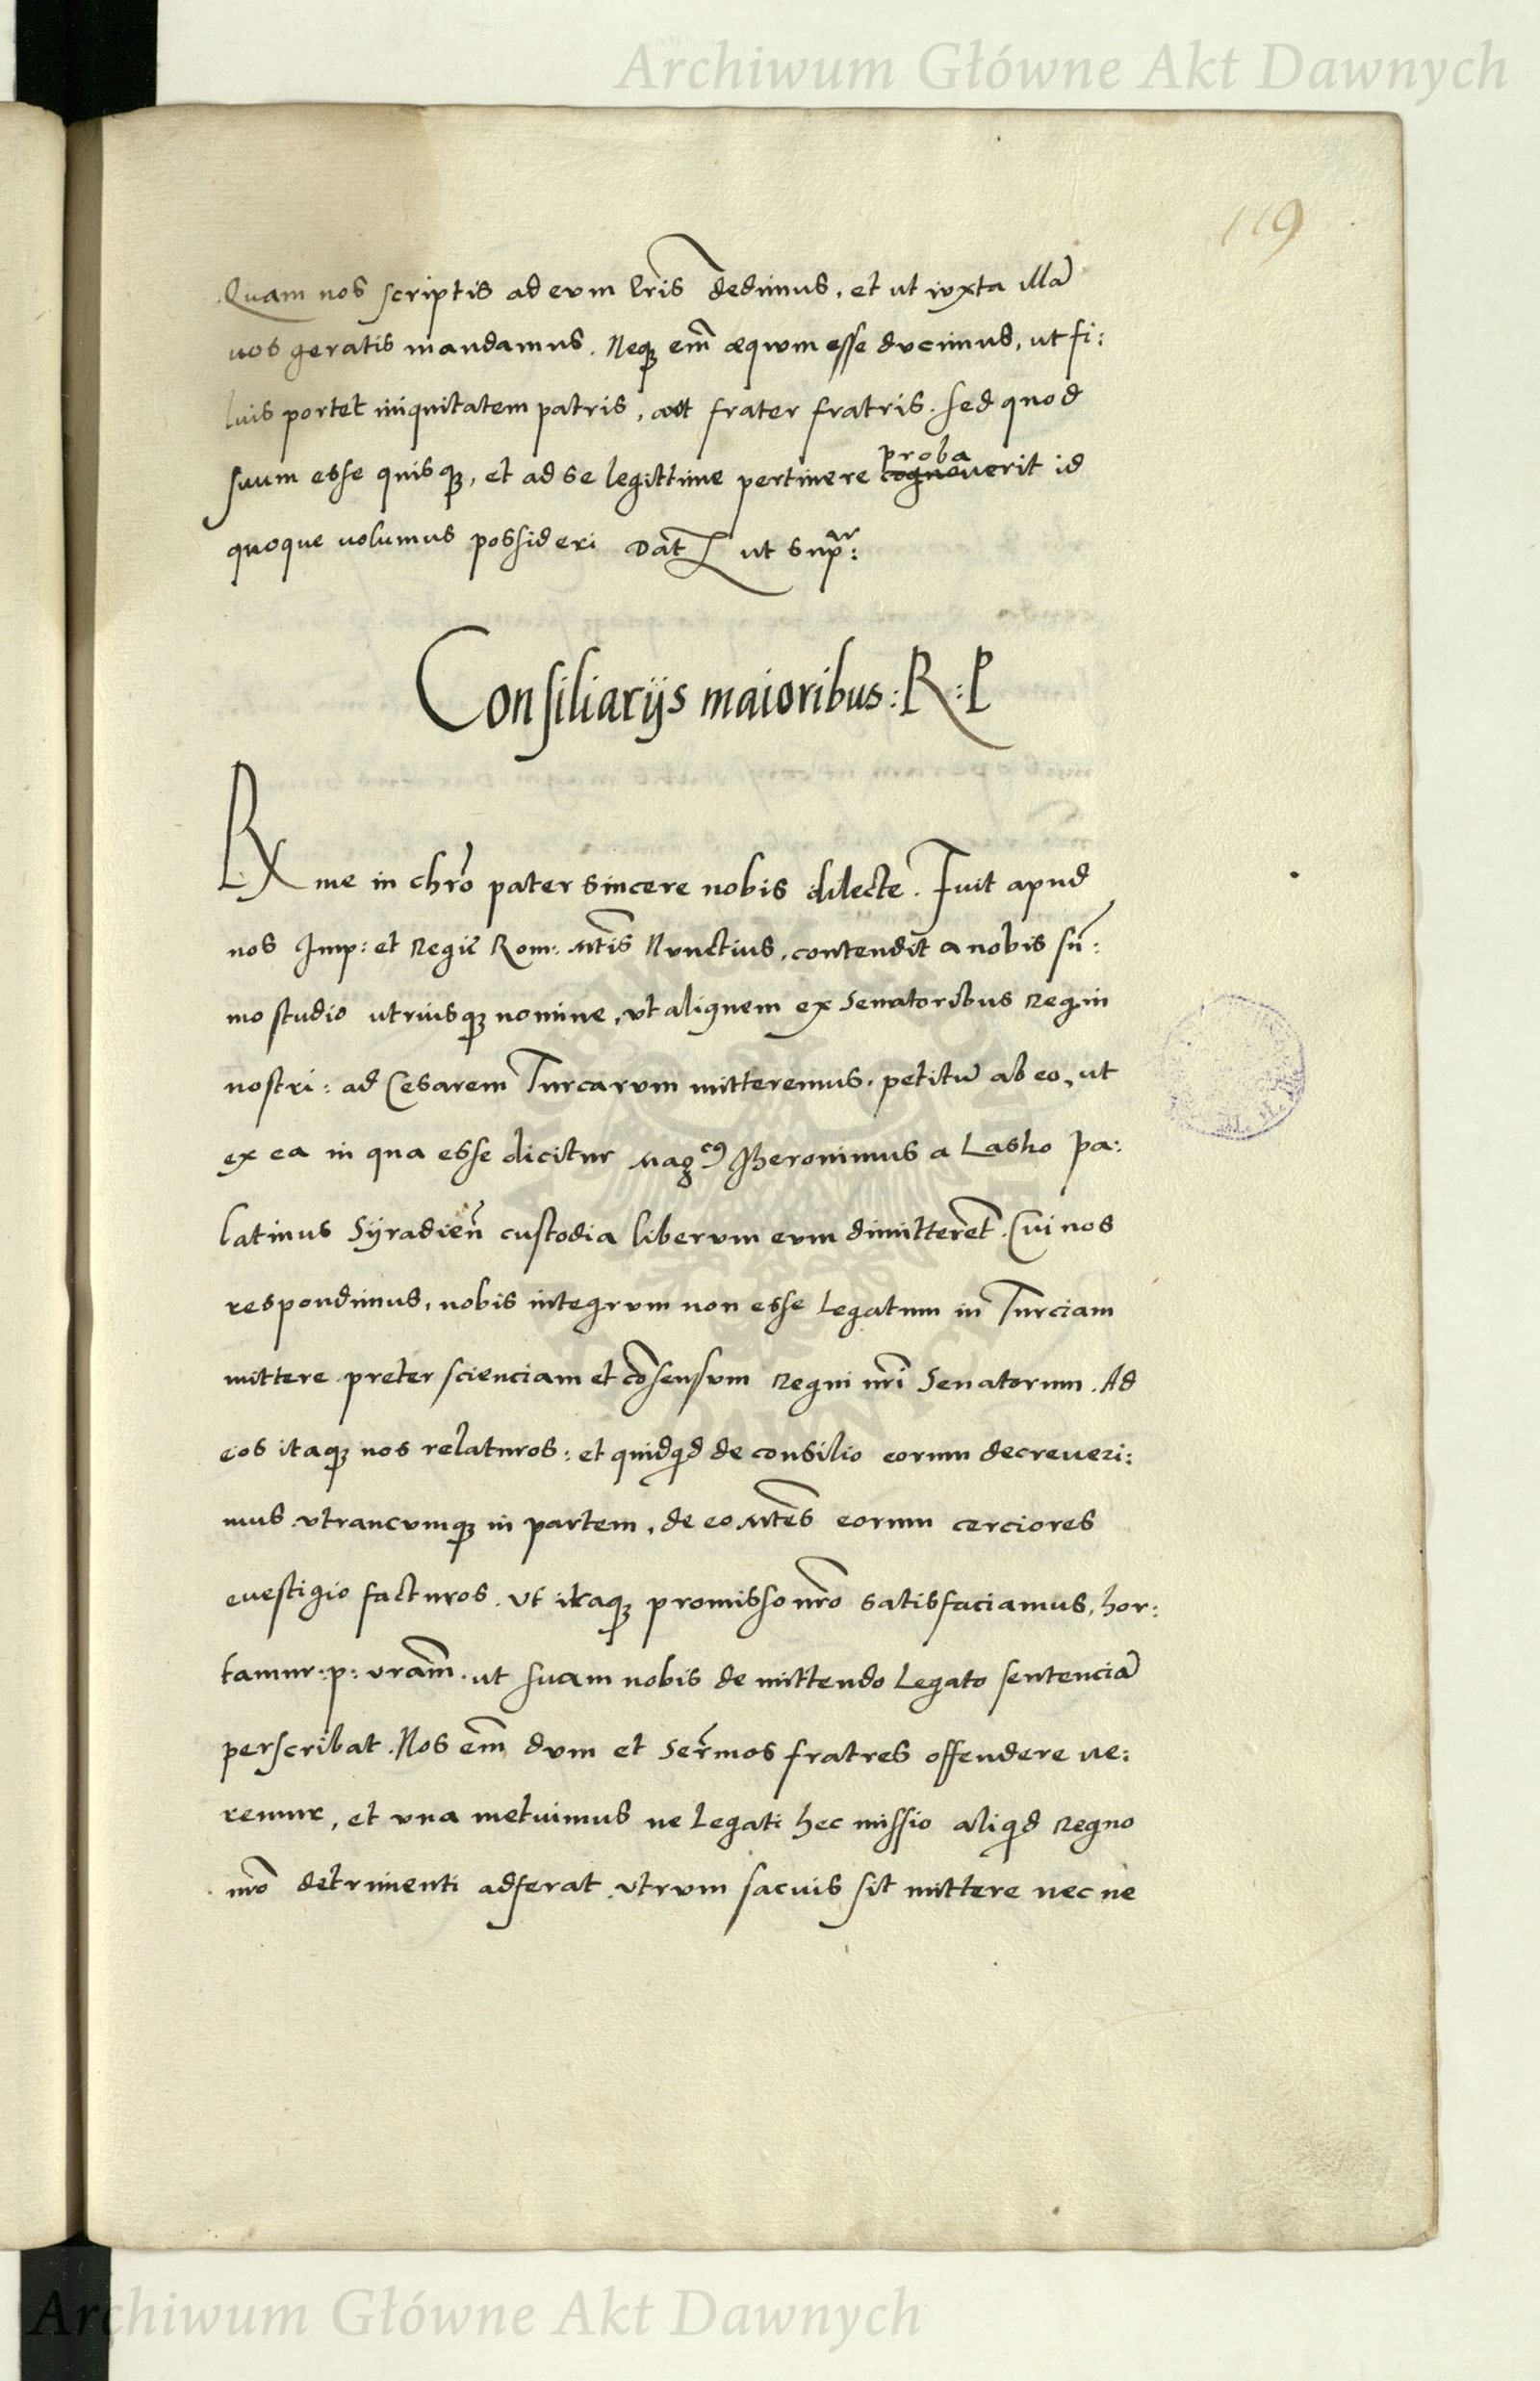 Archiwum Główne Akt Dawnych
119
Quam nos scriptis ad eum lr̃is dedimus, et ut iuxta illã
uos geratis mandamus. Neqꝫ em̃ æquum esse ducimus, ut fi:
lius portet iniquitatem patris, aut frater fratris. sed quod
proba
suum esse quisqꝫ, et ad se legittime pertinere cognouerit id
quoque uolumus possideri Dat̃ L ut supᵃʳ:
Consiliarijs maioribus: R: P
Rx me in chr̃o pater sincere nobis dilecte. Fuit apud
nos Imp: et Regiẽ Rom: Mt̃is Nunctius, contendit a nobis sũ:
mo studio utriusqꝫ nomine, ut aliquem ex Senatoribus Regni
nostri: ad Cesarem Turcarum mitteremus. petitũ ab eo, ut
ex ea in qua esse dicitur Magᶜꝯ Hieronimus a Lasko pa:
latinus Syradieñ custodia liberum eum dimitteret. Cui nos
respondimus, nobis integrum non esse Legatum in Turciam
mittere preter scienciam et cõsensum Regni nr̃i Senatorum. Ad
eos itaqꝫ nos relaturos: et quidqͥd de consilio eorum decreueri:
mus utrancumqꝫ in partem, de eo Mt̃es eorum cerciores
euestigio facturos. Ut itaqꝫ promisso nr̃o satisfaciamus, hor:
tamur: p: vr̃am. ut suam nobis de mittendo Legato sentenciã
perscribat. Nos em̃ dum et Ser̃mos fratres offendere ue:
remur, et una metuimus ne Legati hec missio aliqͥd Regno
nr̃o detrimenti adferat. utrum sacuis sit mittere nec ne
Archiwum Główne Akt Dawnych